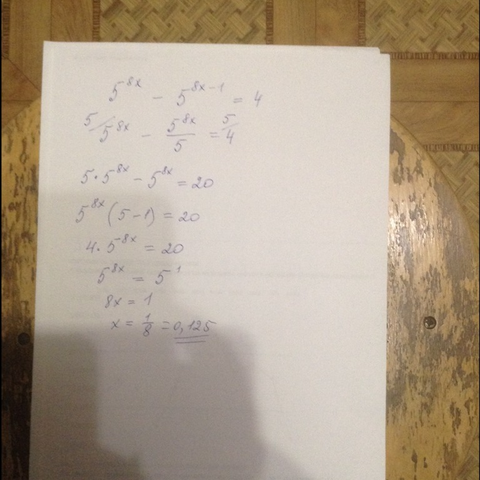 5^{8x} - 5^{8x-1} = 4
5/ 5^{8x} - 5^{8x}/5 = 5/ 4
5 · 5^{8x} - 5^{8x} = 20
5^{8x} (5-1) = 20
4 · 5^{8x} = 20
5^{8x} = 5^{1}
8x = 1
x = 1/8 = 0,125